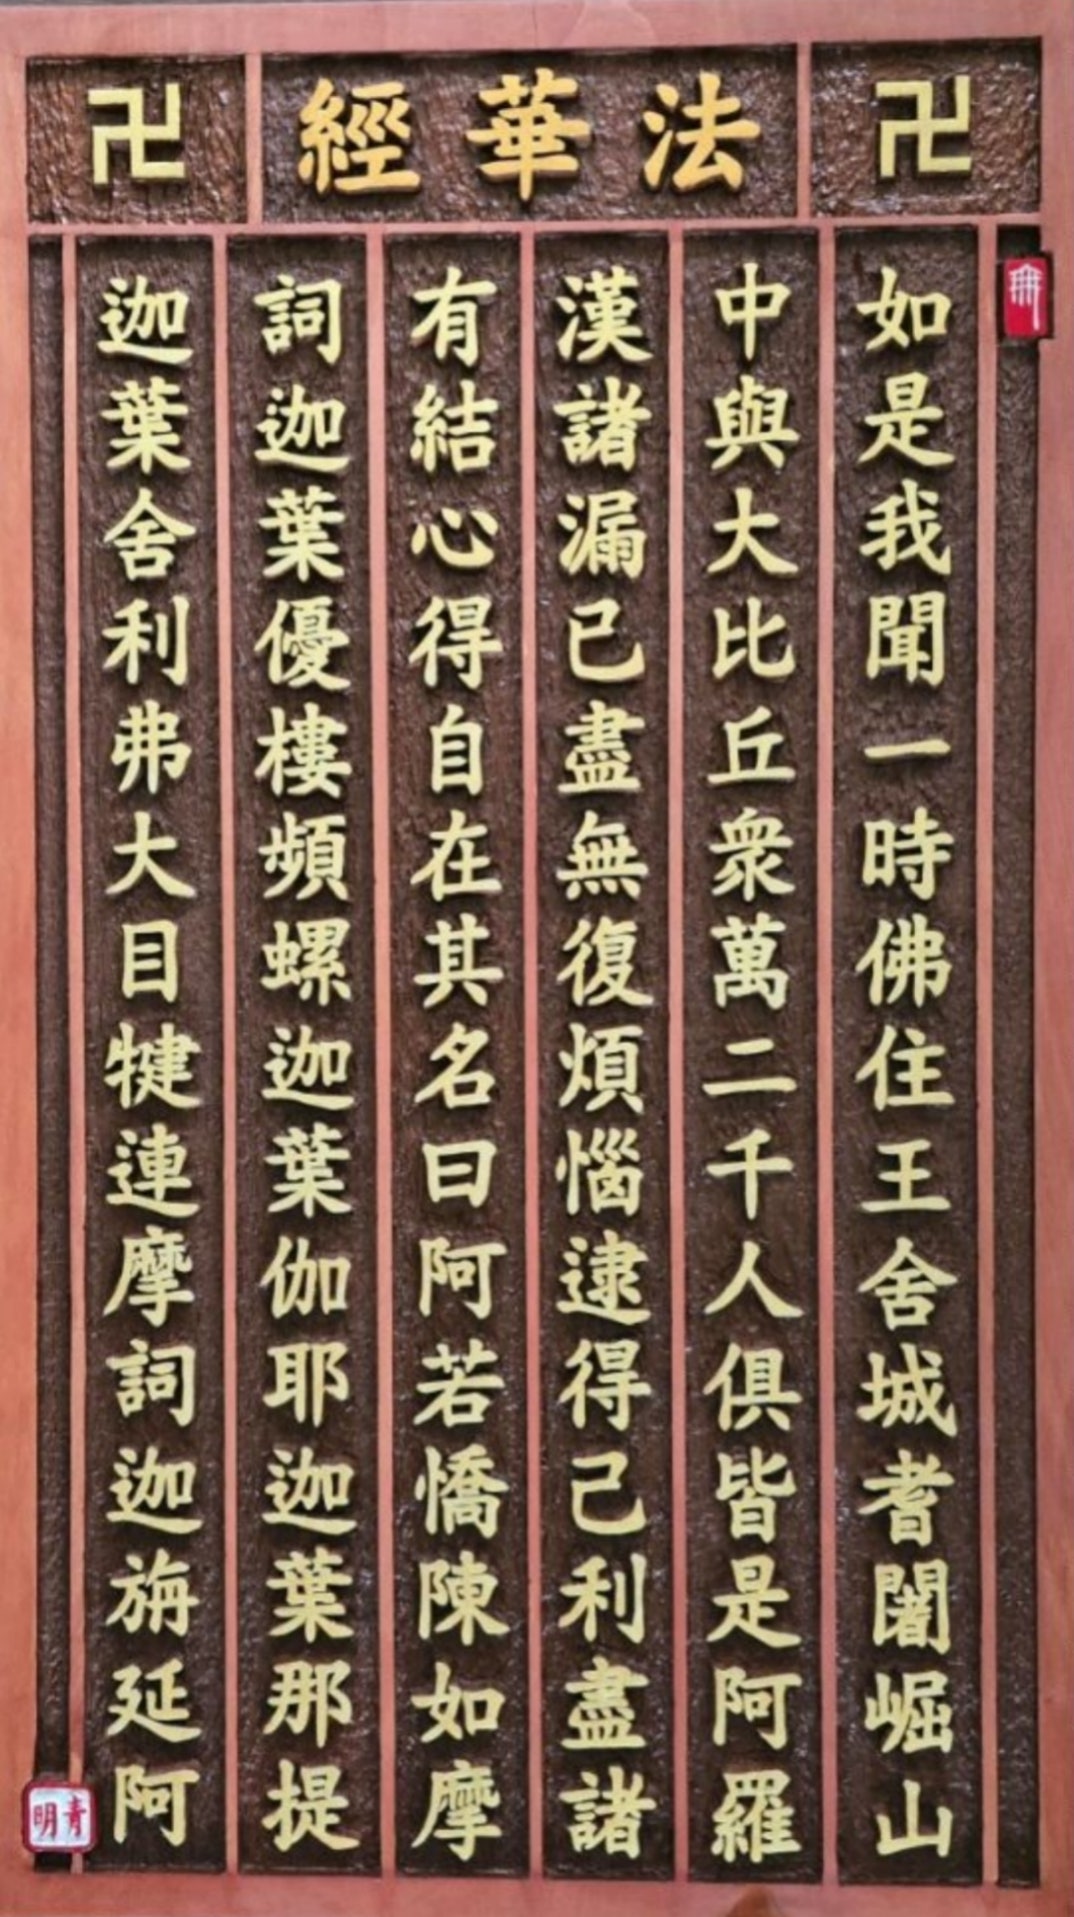 卍 法華經 卍
如是我聞一時佛住王舍城耆闍崛山
中與大比丘眾萬二千人俱皆是阿羅
漢諸漏已盡無復煩惱逮得己利盡諸
有結心得自在其名曰阿若憍陳如摩
詞迦葉優樓頻螺迦葉伽耶迦葉那提
迦葉舍利弗大目犍連摩詞迦旃延阿
青明